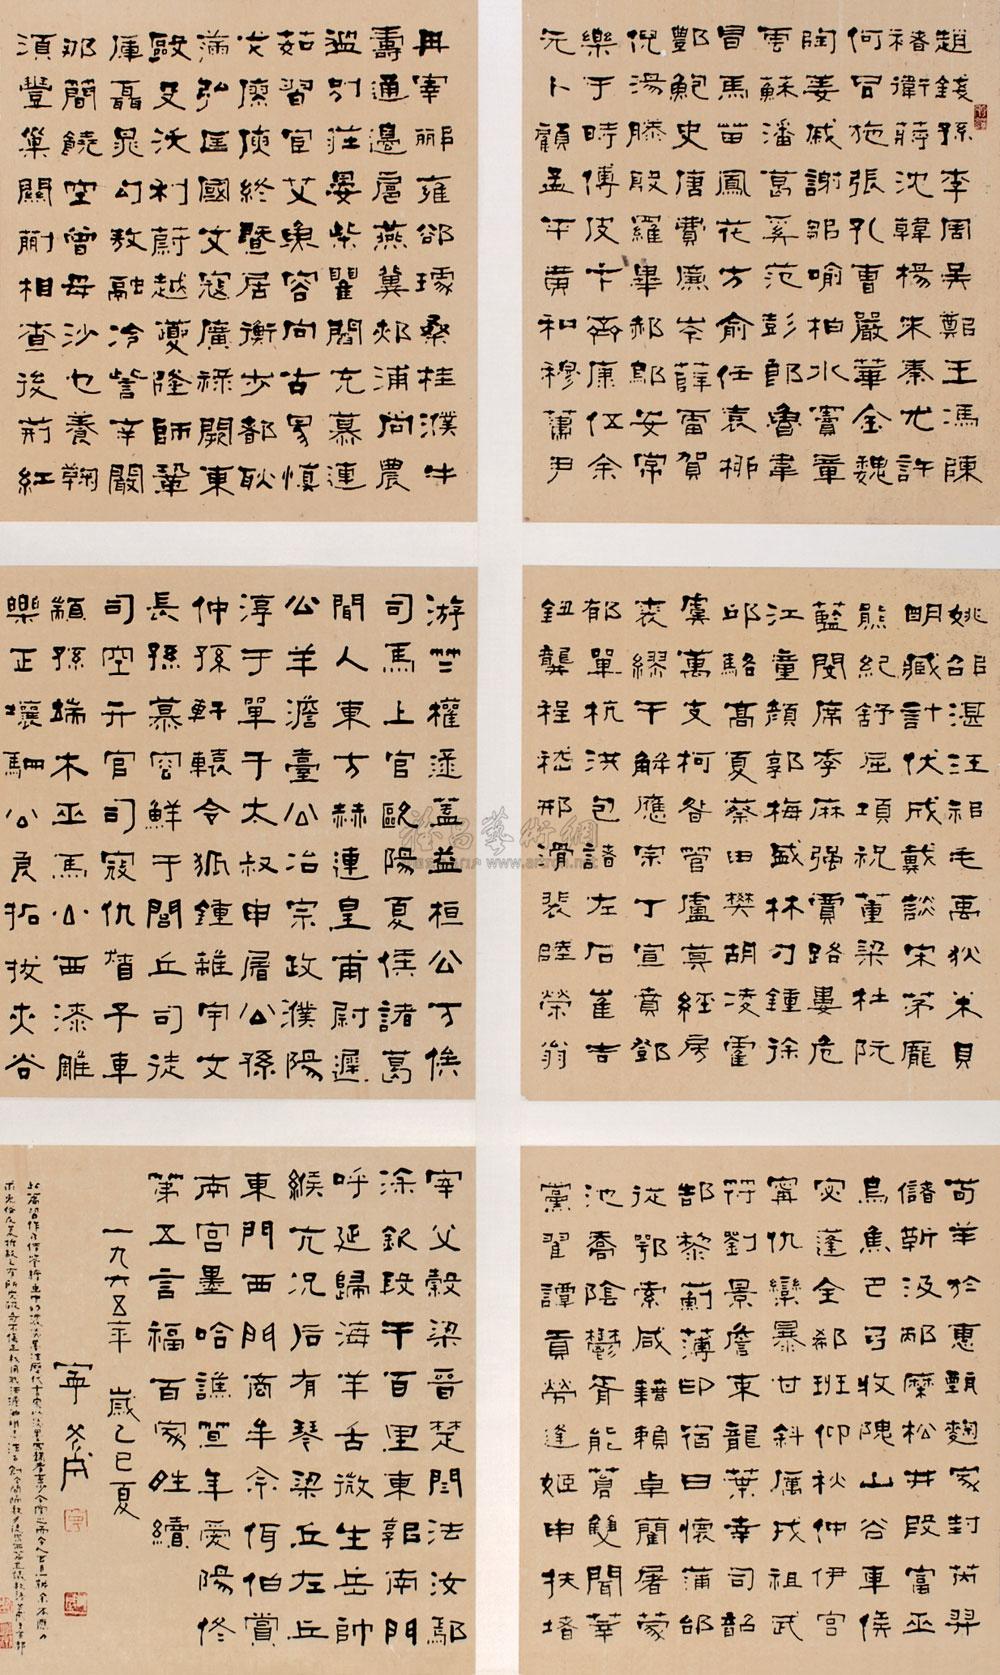 趙錢孫李周吳鄭王馮陳
褚衛蔣沈韓楊朱秦尤許
何呂施張孔曹嚴華金魏
陶姜戚謝鄒喻柏水竇章
雲蘇潘葛奚范彭郎魯韋
昌馬苗鳳花方俞任袁柳
酆鮑史唐費廉岑薛雷賀
倪湯滕殷羅畢郝鄔安常
樂于時傅皮卞齊康伍余
元卜顧孟平黃和穆蕭尹
姚邵湛汪祁毛禹狄米貝
明臧計伏成戴談宋茅龐
熊紀舒屈項祝董梁杜阮
藍閔席季麻强賈路婁危
江童顏郭梅盛林刁鍾徐
邱駱高夏蔡田樊胡凌霍
虞萬支柯昝管盧莫經房
裘繆干解應宗丁宣賁鄧
郁單杭洪包諸左石崔吉
鈕龔程嵇邢滑裴陸榮翁
荀羊於惠甄麴家封芮羿
儲靳汲邴糜松井段富巫
烏焦巴弓牧隗山谷車侯
宓蓬全郗班仰秋仲伊宮
甯仇欒暴甘斜厲戎祖武
符劉景詹束龍葉幸司韶
郜黎薊薄印宿白懷蒲邰
從鄂索咸籍賴卓藺屠蒙
池喬陰鬱胥能蒼雙聞莘
黨翟譚貢勞逄姬申扶堵
冉宰酈雍郤璩桑桂濮牛
壽通邊扈燕冀郟浦尚農
溫別莊晏柴瞿閻充慕連
茹習宦艾魚容向古易慎
戈廖庾終暨居衡步都耿
滿弘匡國文寇廣祿闕東
歐殳沃利蔚越夔隆師鞏
厙聶晁勾敖融冷訾辛闞
那簡饒空曾毋沙乜養鞠
須豐巢關蒯相查後荊紅
游竺權逯蓋益桓公万俟
司馬上官歐陽夏侯諸葛
聞人東方赫連皇甫尉遲
公羊澹臺公冶宗政濮陽
淳于單于太叔申屠公孫
仲孫軒轅令狐鍾離宇文
長孫慕容鮮于閭丘司徒
司空亓官司寇仉督子車
顓孫端木巫馬公西漆雕
樂正壤駟公良拓拔夾谷
宰父穀梁晉楚閆法汝鄢
涂欽段干百里東郭南門
呼延歸海羊舌微生岳帥
緱亢況后有琴梁丘左丘
東門西門商牟佘佴伯賞
南宮墨哈譙笪年愛陽佟
第五言福百家姓續
一九六五年 歲乙巳夏
寧斧成